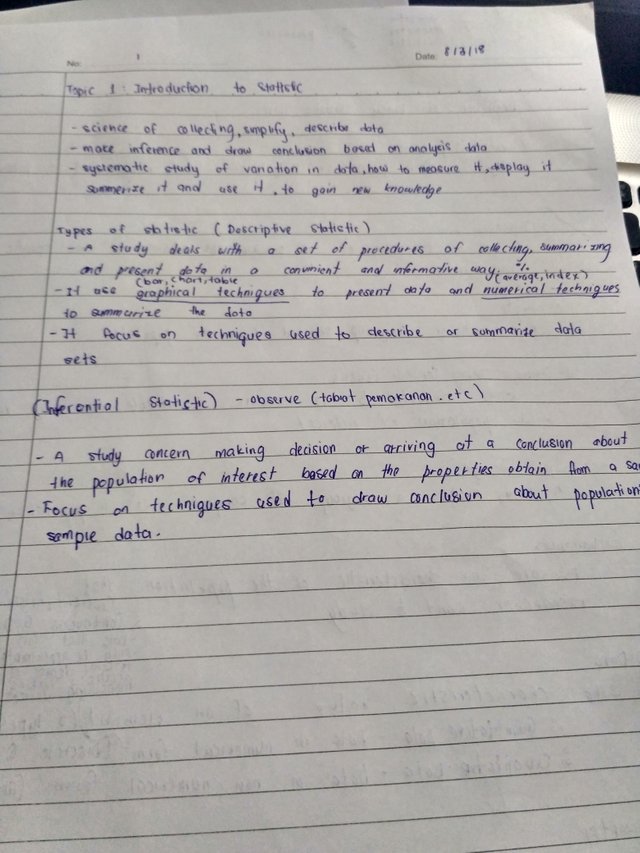 No: 1 Date: 8/3/18
Topic 1 : Introduction to Statistic
- science of collecting, simplify, describe data
- make inference and draw conclusion based on analysis data
- systematic study of variation in data, how to measure it, display it
summerize it and use it, to gain new knowledge
Types of statistic (Descriptive Statistic)
- A study deals with a set of procedures of collecting, summarizing
and present data in a convinient and informative way.
(bar, chart, table %(average, index)
- It use graphical techniques to present data and numerical techniques
to summurize the data
- It focus on techniques used to describe or summarize data
sets
(Inferential Statistic) - observe (tabiat pemakanan. etc)
- A study concern making decision or arriving at a conclusion about
the population of interest based on the properties obtain from a
- Focus on techniques used to draw conclusion about population
sample data.